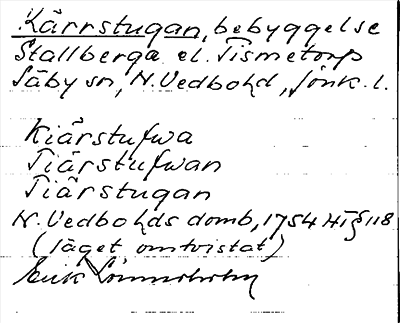 Kärrstugan, bebyggelse
Stallberga el. Tismetorp
Säby sn, N. Vedbo hd, Jönk. l.
Kiärstufwa
Tiärstufwan
Tiärstugan
N. Vedbo hds domb, 1754 HT § 118
(läget omtvistat)
Erik